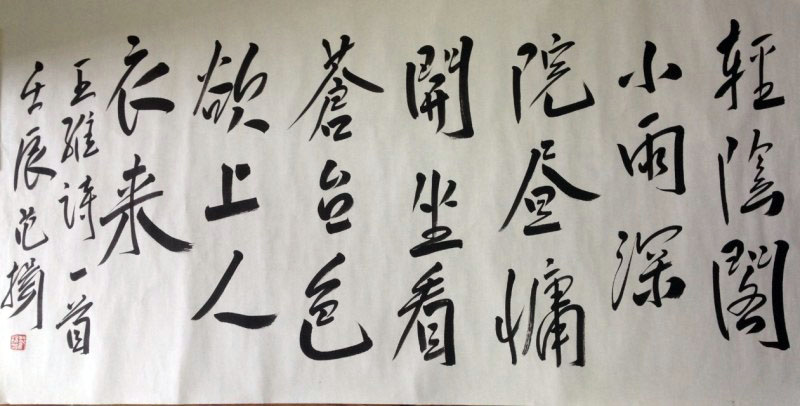 輕陰閣
小雨深
院昼慵
開坐看
蒼台色
欲上人
衣来
王維詩一首
壬辰范